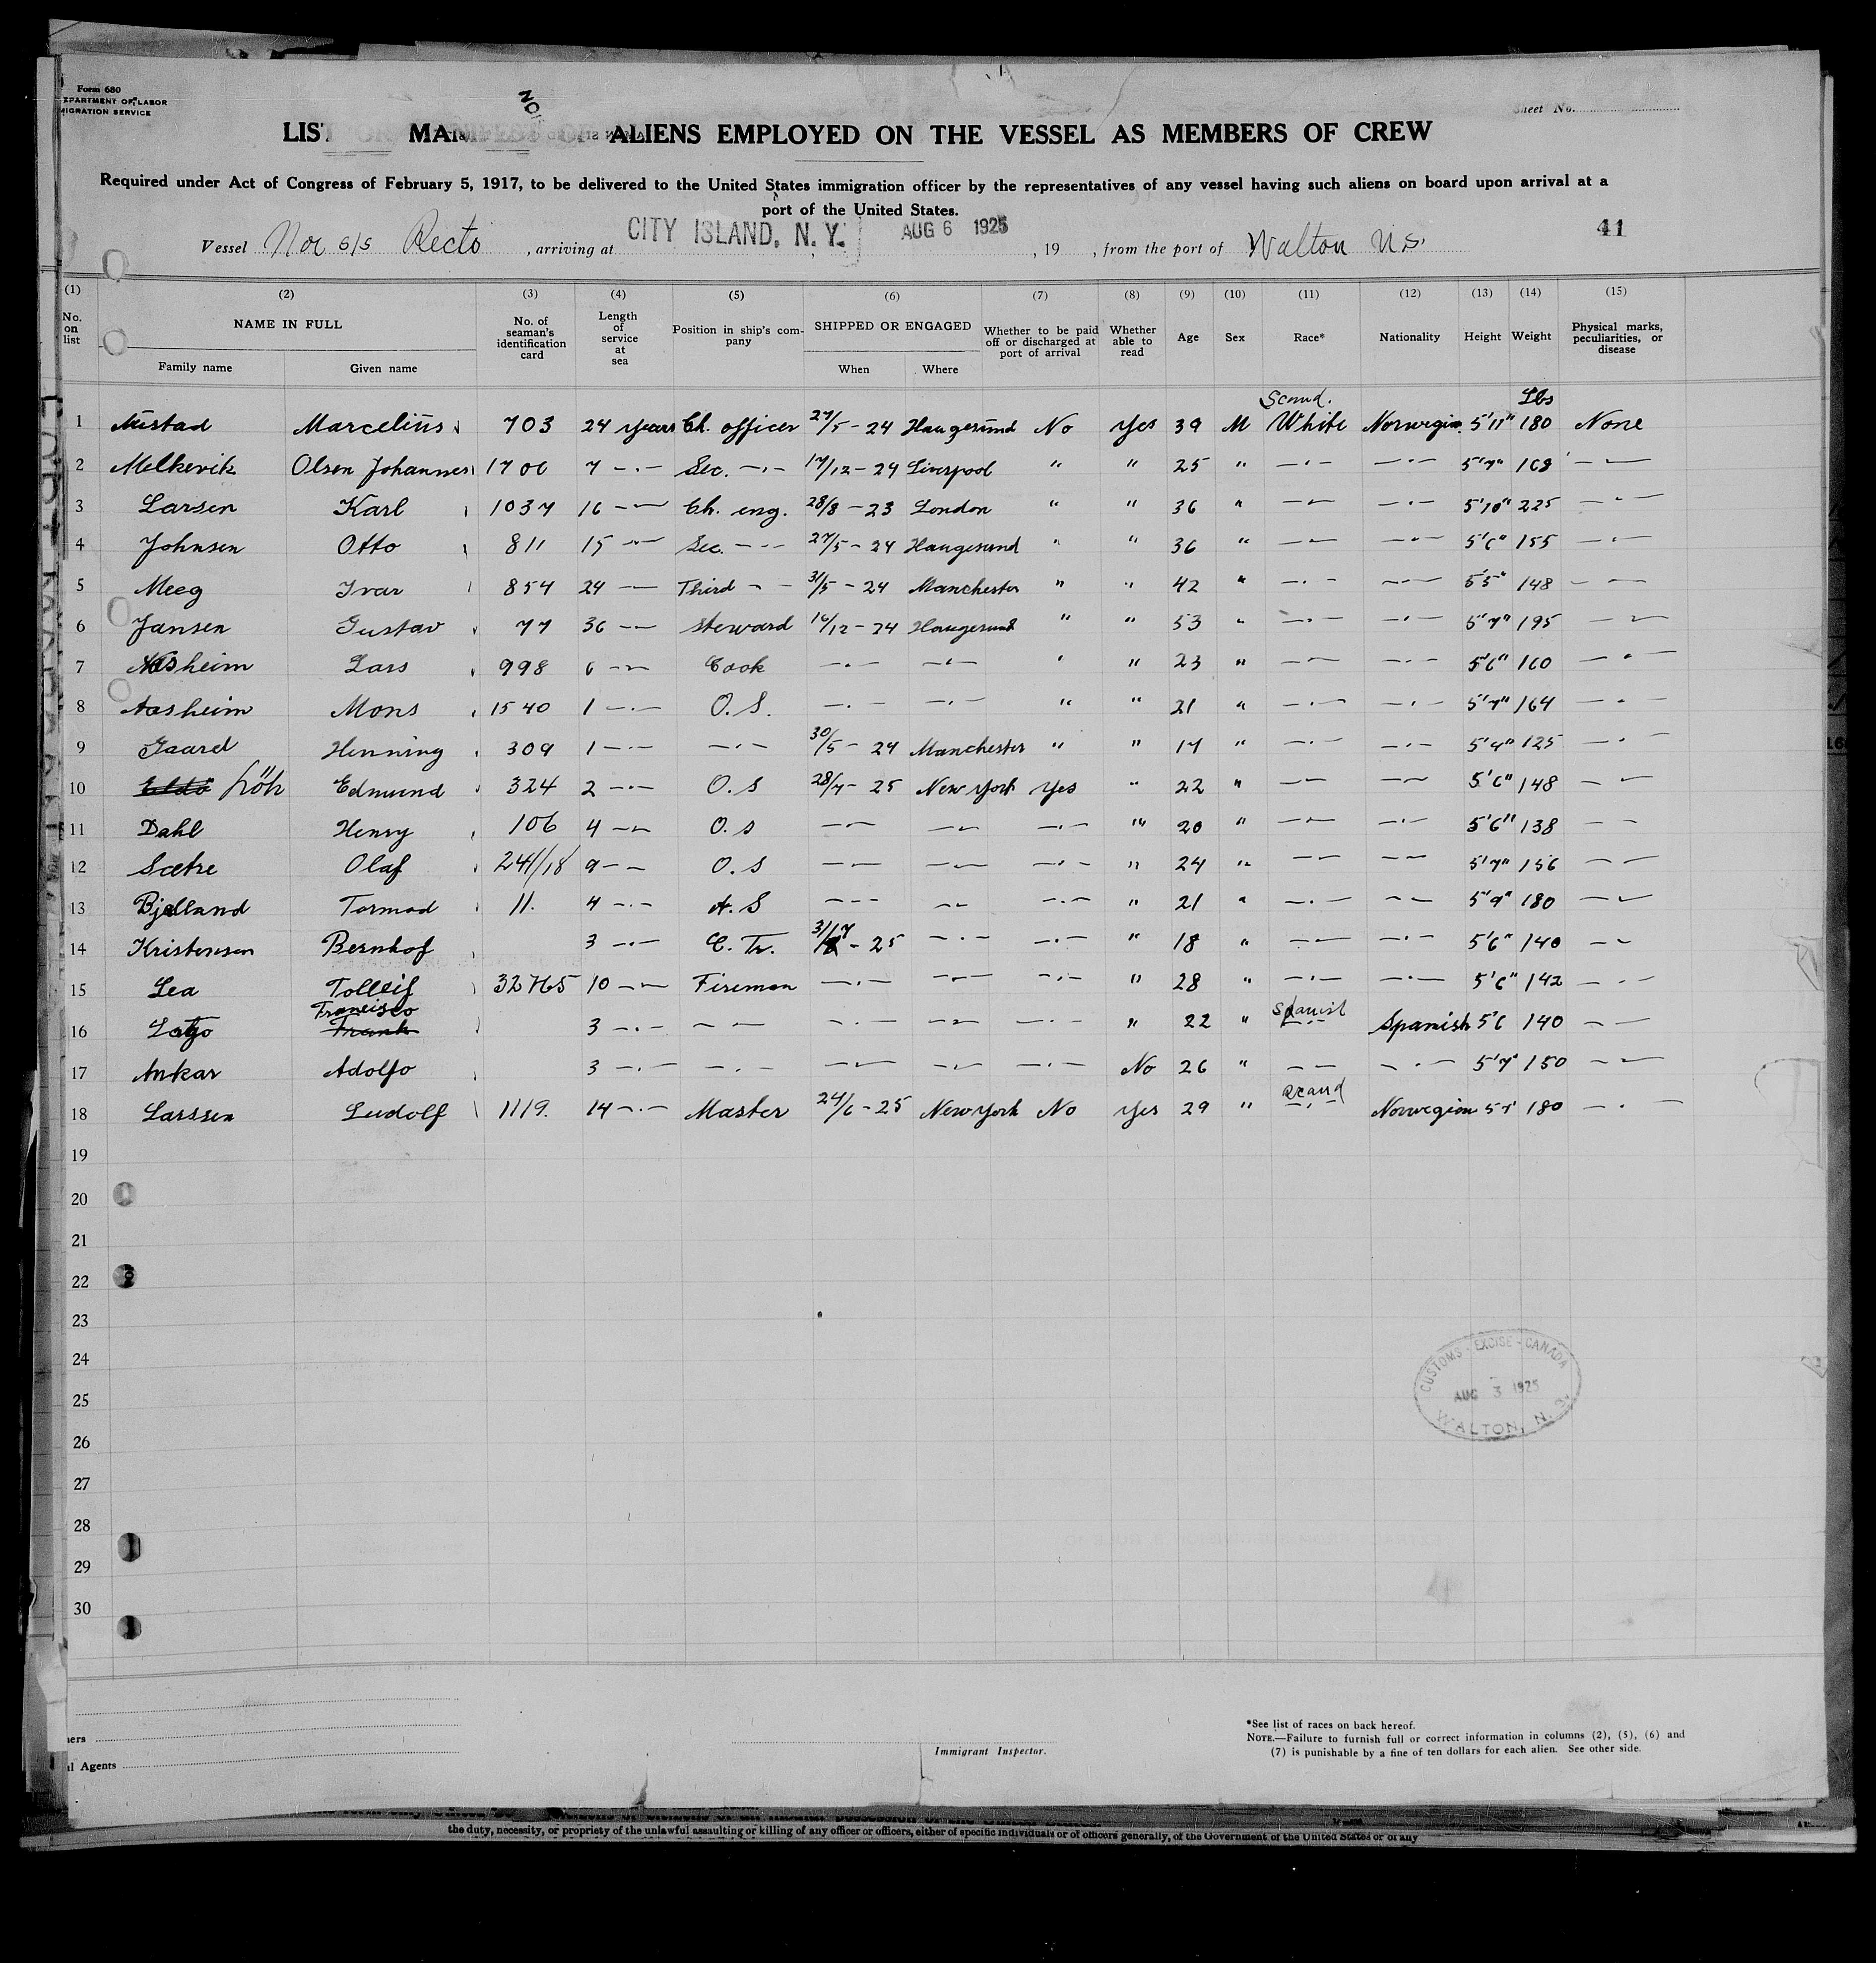 Form 680
DEPARTMENT OF LABOR
IMMIGRATION SERVICE
Sheet No.
LIST MANIFEST OF ALIENS EMPLOYED ON THE VESSEL AS MEMBERS OF CREW
Required under Act of Congress of February 5, 1917, to be delivered to the United States immigration officer by the representatives of any vessel having such aliens on board upon arrival at a
port of the United States.
Vessel Nor s/s Recto , arriving at CITY ISLAND, N. Y. AUG 6 1925 , 19 , from the port of Walton N.S. 41
(1) (2) (3) (4) (5) (6) (7) (8) (9) (10) (11) (12) (13) (14) (15)
No. on list NAME IN FULL Family name Given name No. of seaman's identification card Length of service at sea Position in ship's company SHIPPED OR ENGAGED When Where Whether to be paid off or discharged at port of arrival Whether able to read Age Sex Race* Nationality Height Weight Physical marks, peculiarities, or disease
Scand. Lbs
1 Mustad Marcelius 703 24 years Ch. officer 27/5 - 24 Haugesund No Yes 39 M White Norwegian 5'11" 180 None
2 Melkevik Olsen Johannes 1700 7 -.- Sec. -.- 17/12 - 24 Liverpool " " 25 " -.- -.- 5'7" 168 -.-
3 Larsen Karl 1037 16 -.- Ch. eng. 28/8 - 23 London " " 36 " -.- -.- 5'10" 225 -.-
4 Johnsen Otto 811 15 -.- Sec. -.- 27/5 - 24 Haugesund " " 36 " -.- -.- 5'6" 155 -.-
5 Meeg Ivar 854 24 -.- Third -.- 31/5 - 24 Manchester " " 42 " -.- -.- 5'5" 148 -.-
6 Jansen Gustav 77 36 -.- Steward 16/12 - 24 Haugesund " " 53 " -.- -.- 5'7" 195 -.-
7 Aasheim Lars 998 6 -.- Cook -.- -.- " " 23 " -.- -.- 5'6" 160 -.-
8 Aasheim Mons 1540 1 -.- O.S. -.- -.- " " 21 " -.- -.- 5'7" 164 -.-
9 Gaard Henning 309 1 -.- -.- 30/5 - 24 Manchester " " 17 " -.- -.- 5'4" 125 -.-
10 Edmund 324 2 -.- O.S 28/7 - 25 New York Yes " 22 " -.- -.- 5'6" 148 -.-
11 Dahl Henry 106 4 -.- O.s -.- -.- -.- " 20 " -.- -.- 5'6" 138 -.-
12 Sætre Olaf 241/18 9 -.- O.s -.- -.- -.- " 24 " -.- -.- 5'7" 156 -.-
13 Bjelland Tormod 11. 4 -.- A.S -.- -.- -.- " 21 " -.- -.- 5'9" 180 -.-
14 Kristensen Bernhof 3 -.- C. Tr. 31/7 - 25 -.- -.- " 18 " -.- -.- 5'6" 140 -.-
15 Lea Tolleif 32765 10 -.- Fireman -.- -.- -.- " 28 " -.- -.- 5'6" 142 -.-
16 Francisco Frank 3 -.- -.- -.- -.- -.- " 22 " Spanish -.- Spanish 5'6 140 -.-
17 Ankar Adolfo 3 -.- -.- -.- -.- -.- No 26 " -.- -.- 5'7" 150 -.-
18 Larssen Ludolf 1119. 14 -.- Master 24/6 - 25 New York No Yes 29 " Scand -.- Norwegian 180 -.-
19
20
21
22
23
24
25
26
27
28
29
30
CUSTOMS - EXCISE - CANADA
AUG 3 1925
WALTON, N.S.
Agents
Immigrant Inspector.
*See list of races on back hereof.
NOTE.—Failure to furnish full or correct information in columns (2), (5), (6) and
(7) is punishable by a fine of ten dollars for each alien. See other side.
the duty, necessity, or propriety of the unlawful assaulting or killing of any officer or officers, either of specific individuals or of officers generally, of the Government of the United States or of any